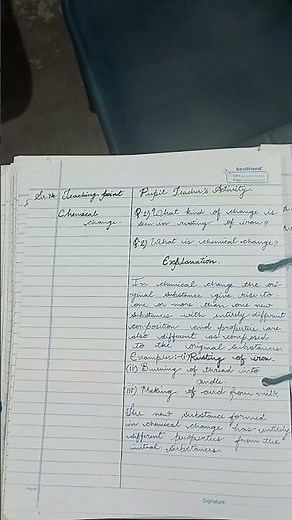 bestfriend
Date
Page
Sr.No. Teaching point Pupil Teacher's Activity.
Chemical change.
Q.1) What kind of change is
seen in rusting of iron?
Q.2) What is chemical change?
Explanation.
In chemical change the ori-
ginal substance give rise to
one or more than one new
substances with entirely different
composition and properties are
also different as compared
to the original substances
Examples:- (i) Rusting of iron.
(ii) Burning of thread into
candle
(iii) Making of curd from milk.
The new substance formed
in chemical change has entirely
different properties from the
initial substances.
Signature